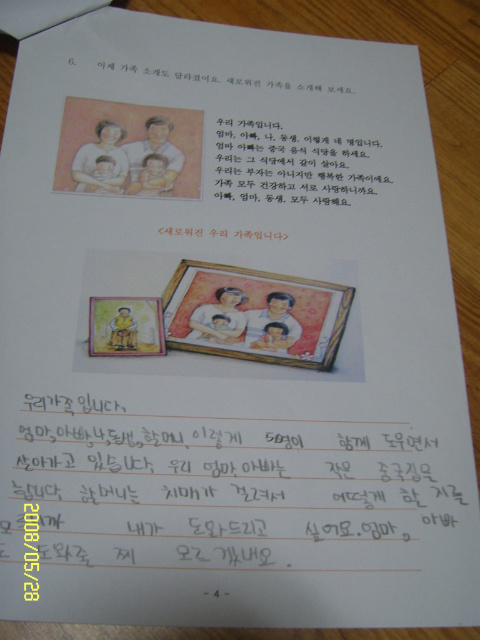 6. 이제 가족 소개도 달라졌어요. 새로워진 가족을 소개해 보세요.
우리 가족입니다.
엄마, 아빠, 나, 동생, 이렇게 네 명입니다.
엄마 아빠는 중국 음식 식당을 하세요.
우리는 그 식당에서 같이 살아요.
우리는 부자는 아니지만 행복한 가족이에요.
가족 모두 건강하고 서로 사랑하니까요.
아빠, 엄마, 동생, 모두 사랑해요.
<새로워진 우리 가족입니다>
우리가족입니다.
엄마,아빠,나,동생,할머니,이렇게 5명이 함께 도우면서
살아가고 있습니다. 우리 엄마,아빠는 작은 중국집을
합니다. 할머니는 치매가 걸려서 어떻게 할 지를
모 내가 도와드리고 싶어요.엄마, 아빠
도 도와줄 찌 모르겠내요.
- 4 -
2008/05/28